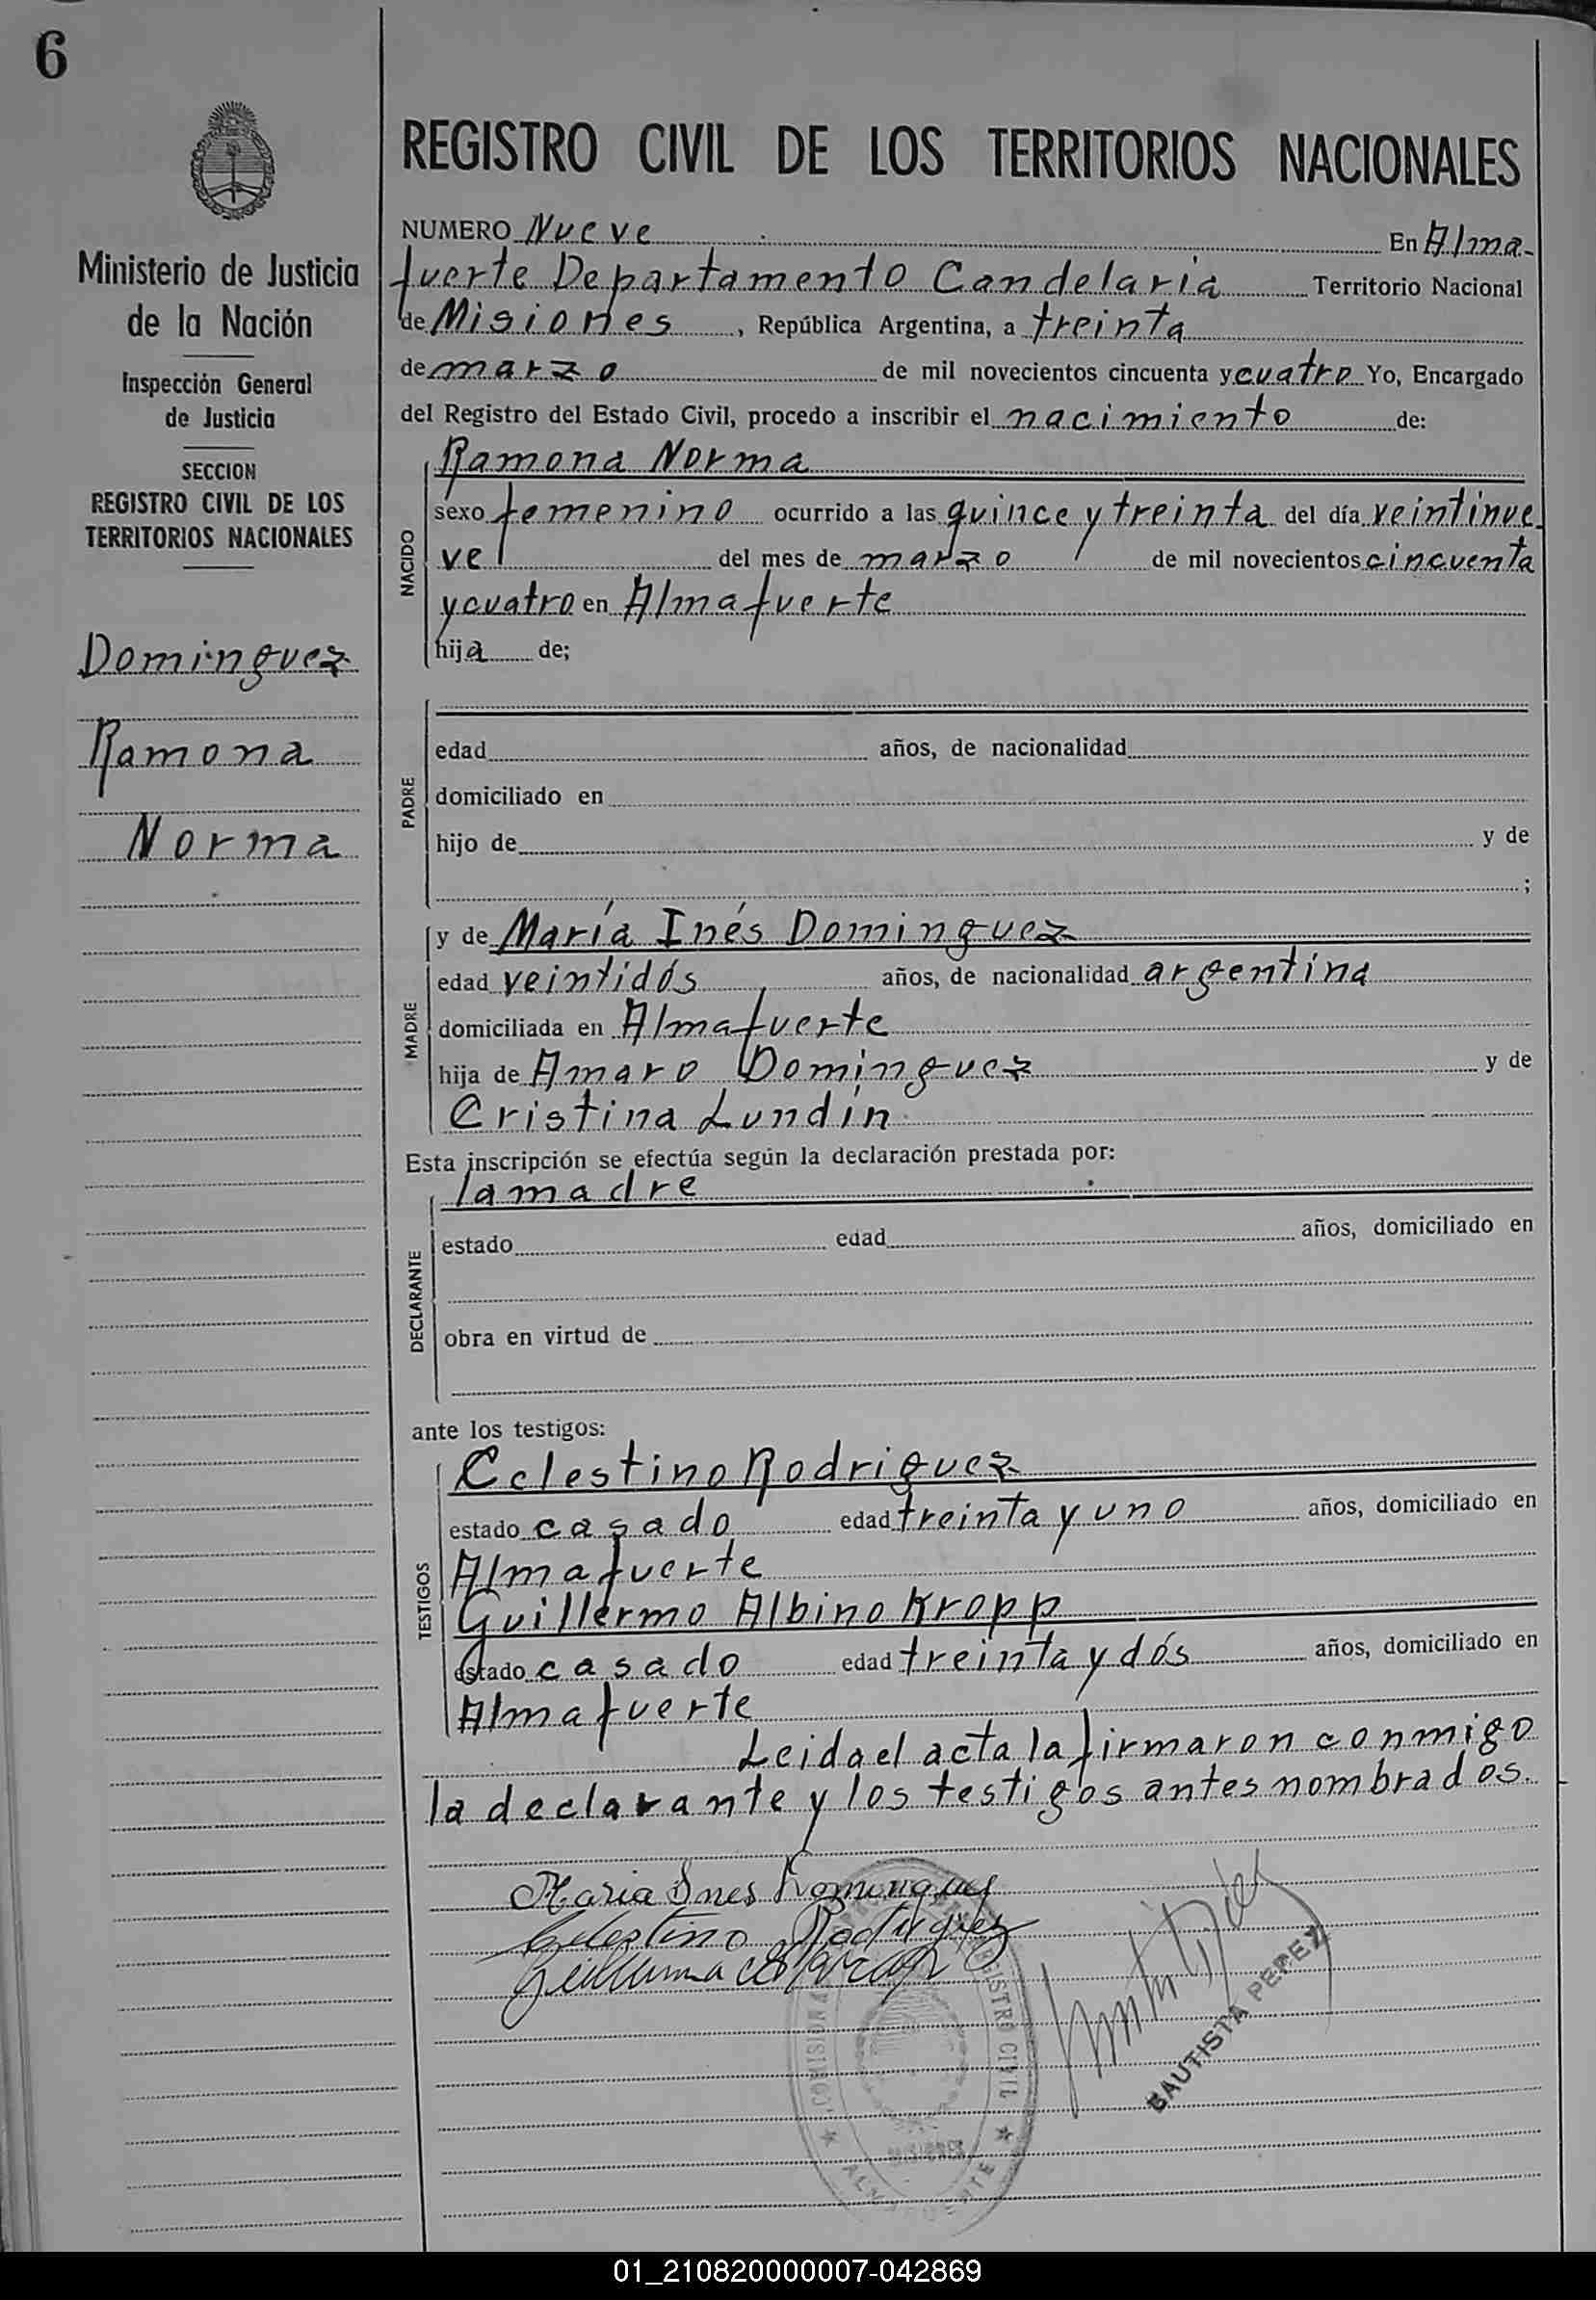 6
Ministerio de Justicia
de la Nación
Inspección General
de Justicia
SECCION
REGISTRO CIVIL DE LOS
TERRITORIOS NACIONALES
Dominguez
Ramona
Norma
REGISTRO CIVIL DE LOS TERRITORIOS NACIONALES
NUMERO Nueve En Alma-
fuerte Departamento Candelaria Territorio Nacional
de Misiones, República Argentina, a treinta
de marzo de mil novecientos cincuenta y cuatro Yo, Encargado
del Registro del Estado Civil, procedo a inscribir el nacimiento de:
NACIDO
Ramona Norma
sexo femenino ocurrido a las quince y treinta del día veintinue-
ve del mes de marzo de mil novecientos cincuenta
y cuatro en Almafuerte
hija de;
PADRE
edad años, de nacionalidad
domiciliado en
hijo de y de
;
MADRE
y de María Inés Dominguez
edad veintidós años, de nacionalidad argentina
domiciliada en Almafuerte
hija de Amaro Dominguez y de
Cristina Lundín
Esta inscripción se efectúa según la declaración prestada por:
DECLARANTE
la madre
estado edad años, domiciliado en
obra en virtud de
ante los testigos:
TESTIGOS
Celestino Rodriguez
estado casado edad treinta y uno años, domiciliado en
Almafuerte
Guillermo Albino Kropp
estado casado edad treinta y dós años, domiciliado en
Almafuerte
Leida el acta la firmaron conmigo
la declarante y los testigos antes nombrados.
Maria Ines Dominguez
Celestino Rodriguez
BAUTISTA PEREZ
REGISTRO CIVIL
ALMAFUERTE
MISIONES
01_210820000007-042869